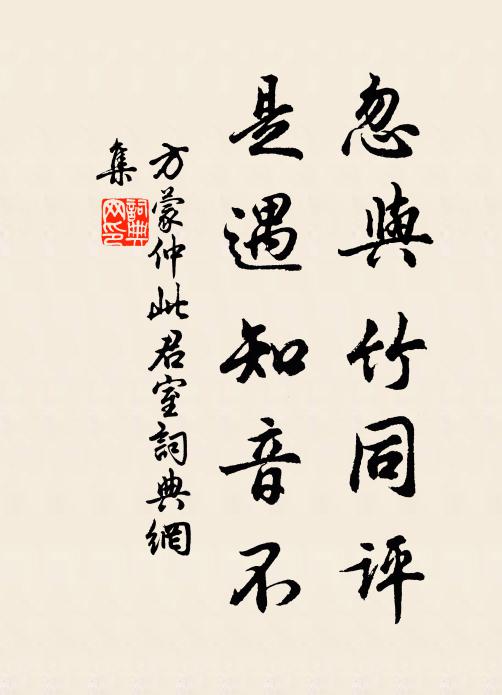 忽與竹同評
是遇知音不
方蒙仲此君室詞典網
集
詞典網印